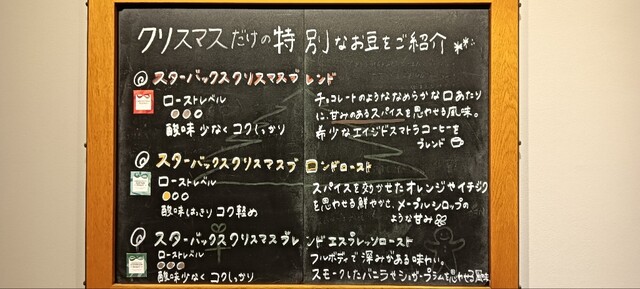 クリスマスだけの特別なお豆をご紹介
スターバックスクリスマスブレンド
ローストレベル
酸味 少なく コクしっかり
チョコレートのようななめらかな口あたり
に、甘みのあるスパイスを思わせる風味。
希少なエイジドスマトラコーヒーを
ブレンド
スターバックスクリスマスブロンドロースト
ローストレベル
酸味はっきり コク軽め
スパイスを効かせたオレンジやイチジク
を思わせる鮮やかさ、メープルシロップの
ような甘み
スターバックスクリスマスブレンド エスプレッソロースト
ローストレベル
酸味少なく コクしっかり
フルボディで深みがある味わい。
スモークしたバニラやシュガープラムを思わせる風味